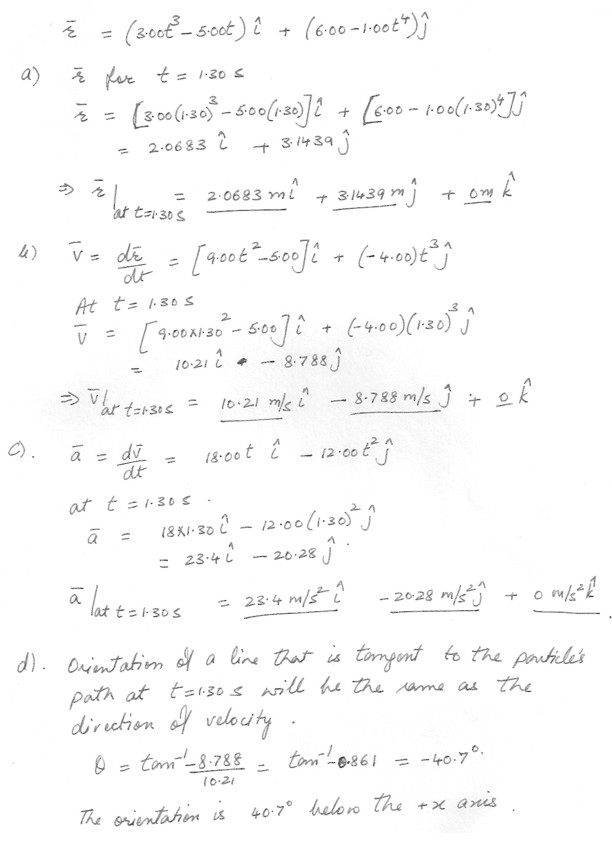 r̄ = (3.00t³ – 5.00t) î + (6.00 – 1.00t⁴) ĵ
a) r̄ for t = 1.30 s
r̄ = [3.00(1.30)³ – 5.00(1.30)] î + [6.00 – 1.00(1.30)⁴] ĵ
= 2.0683 î + 3.1439 ĵ
⇒ r̄ |at t=1.30 s = 2.0683 m î + 3.1439 m ĵ + 0 m k̂
b) v̄ = dr̄/dt = [9.00t² – 5.00] î + (–4.00)t³ ĵ
At t = 1.30 s
v̄ = [9.00×1.30² – 5.00] î + (–4.00)(1.30)³ ĵ
= 10.21 î – 8.788 ĵ
⇒ v̄ |at t=1.30 s = 10.21 m/s î – 8.788 m/s ĵ + 0 k̂
c). ā = dv̄/dt = 18.00t î – 12.00t² ĵ
at t = 1.30 s.
ā = 18×1.30 î – 12.00(1.30)² ĵ
= 23.4 î – 20.28 ĵ.
ā |at t=1.30 s = 23.4 m/s² î – 20.28 m/s² ĵ + 0 m/s² k̂.
d). Orientation of a line that is tangent to the particle's
path at t=1.30 s will be the same as the
direction of velocity.
θ = tan⁻¹ –8.788/10.21 = tan⁻¹ –0.861 = –40.7°.
The orientation is 40.7° below the +x axis.